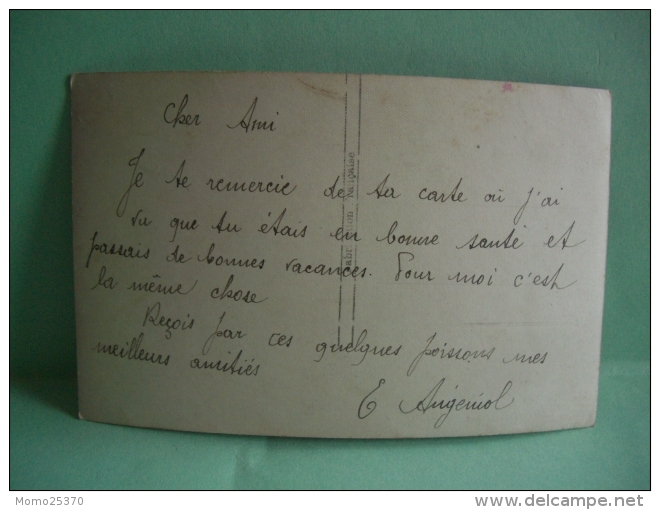 Cher Ami
Je te remercie de ta carte où j'ai
vu que tu étais en bonne santé et
passais de bonnes vacances. Pour moi c'est
la même chose
Reçois par ces quelques poissons mes
meilleurs amitiés
E Angeniol
Fabrication Française
Momo25370
http://www.delcampe.net